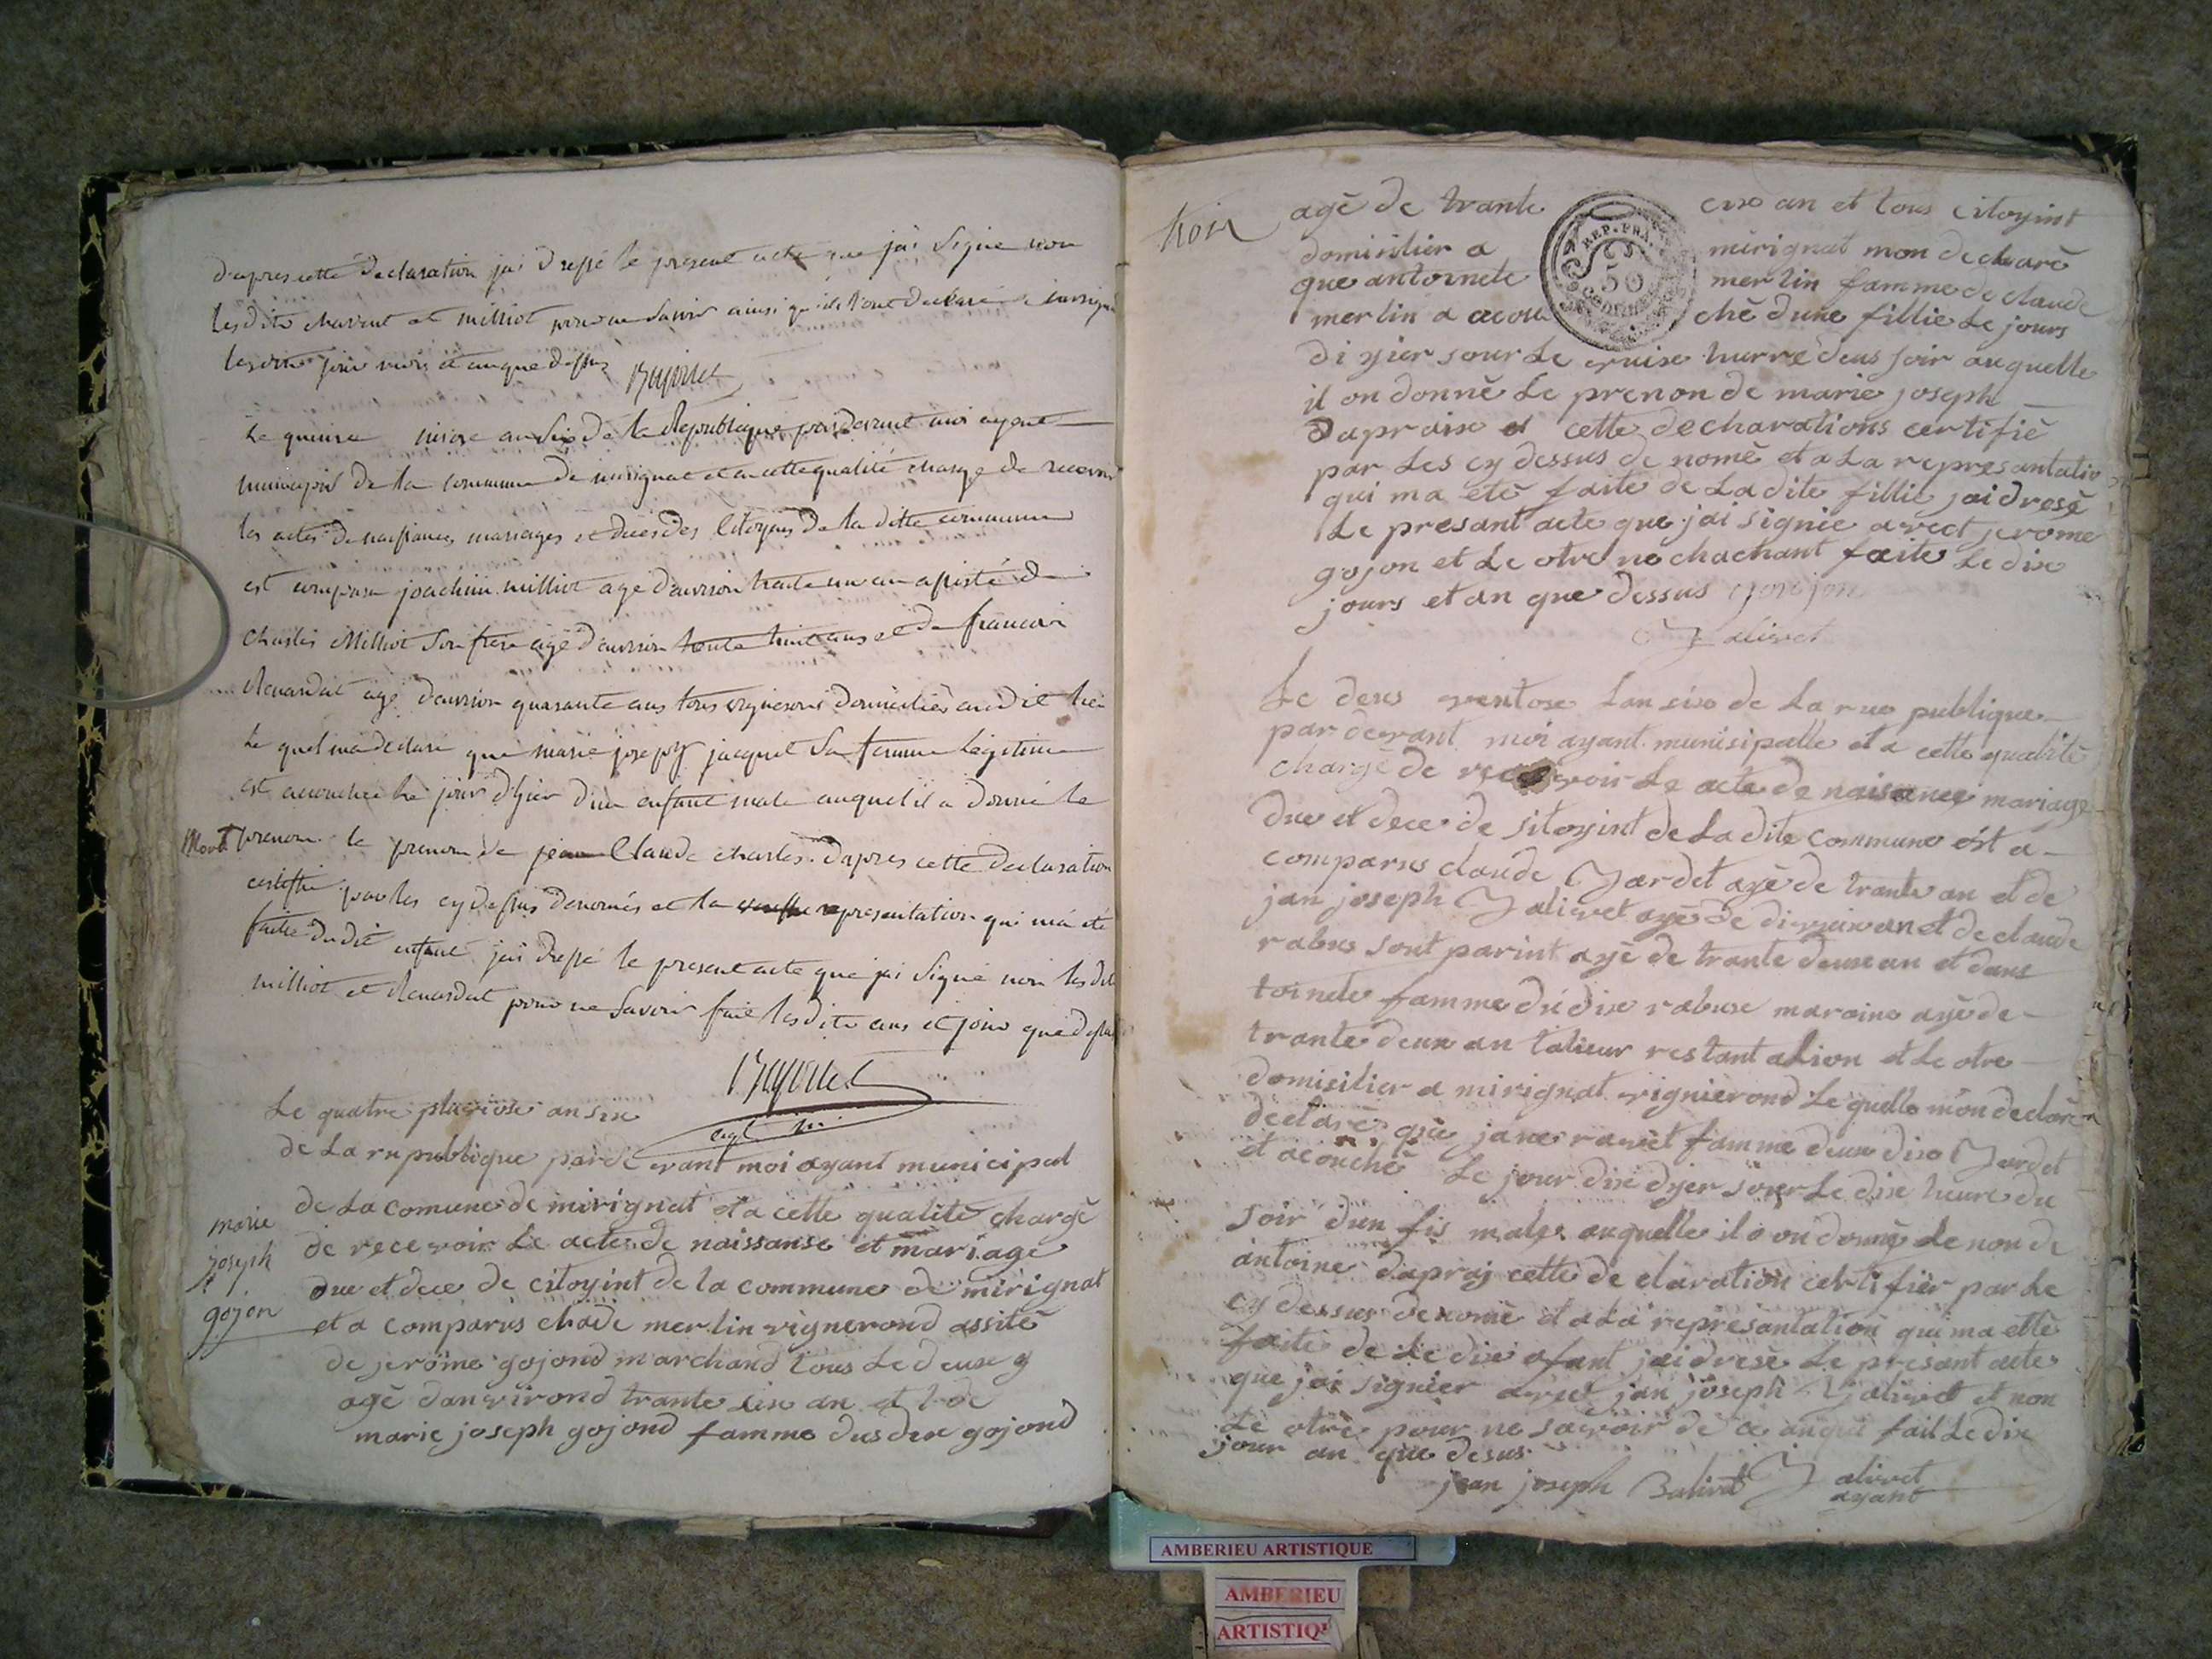 d'apres cette declaration jai dressé le present acte que jai signé non
lesdits et milliot pour ne savoir ainsi qu'ils l'ont declaré a mirignat
les dits jour mois et an que dessus
Le quinze nivose an six de la Republique pardevant moi agent
municipal de la commune de mirignat et en cette qualité charge de recevoir
les actes de naissances mariages et deces des Citoyens de la ditte commune
est comparu joachim milliot agé d'environ trente un an assisté de
Charles Milliot son frere agé d'environ trente huit ans et de francois
Renardat agé d'environ quarante ans tous vignerons domiciliés audit lieu
le quel m'a declaré que marie joseph jacquet sa femme legitime
est accouchée le jour d'hier d'un enfant male auquel il a donné le
Mort
prenom le prenom de jean Claude charles. d'apres cette declaration
certiffié par les cy dessus denomés et la representation qui m'a eté
faite du dit enfant jai dressé le present acte que jai signé non les dits
milliot et Renardat pour ne savoir fait les dits ans et jour que dessus
Le quatre pluviose an six
de La republique par devant moi ayant municipal
de La comune de mirignat et a cette qualité chargé
marie
joseph
gojon
de recevoir Le acte de naissanse et mariage
due et dece de citoyint de la commune de mirignat
et a comparus claude merlin vignerond assité
de jerome gojond marchand tous Le deuse
agé danvirond trante sise an et de
marie joseph gojond famme dus dise gojond
trois
agé de trante cise an et tous citoyint
REP. FRA.
50
domisilier a mirignat mon decharé
que antoinete merlin famme de claude
merlin a acouché dune fillie Le jours
di yier sour Le heurre deus soir auquelle
il on donné Le prenon de marie joseph
Dapraise et cette decharations certifié
par Les cy dessus de nomé et a La represantatio
qui ma eté faite de La dite fillie jai dresé
Le presant acte que jai signie avect jerome
gojon et Le otre ne chachant faite Le dise
jours et an que dessus gojon
Jalivet
Le deus ventose Lan sise de La rue publique
par devant moi ayant munisipalle et a cette qualité
chargé de recevoir Le acte de naisance mariage
due et dece de sitoyint de La dite commune est a
comparus claude Jardet agé de trante an et de
jan joseph Jalivet agé de an et de claude
rabus sont parint agé de trante deuse an et dans
toinete famme du dise rabuse maraine agé de
trante deux an talieur restant a Lion et Le otre
domisilier a mirignat vignierond Le quelle mon declaré
declaré que jane ravet famme deux dise Jardet
et acouché Le jour dise dyer sour Le dise heure du
soir dun fis male auquelle il on donné Le non de
antoine dapraj cette de claration certifier par Le
cy dessus denomé et a La represantation qui ma etté
faite de Le dise afant jai dresé Le presant acte
que jai signier avect jan joseph Jalivet et non
Le otre pour ne savoir de ce anqui fait Le dise
jour an que desus
jean joseph Jalivet Jalivet
ayant
AMBERIEU ARTISTIQUE
AMBERIEU
ARTISTIQU